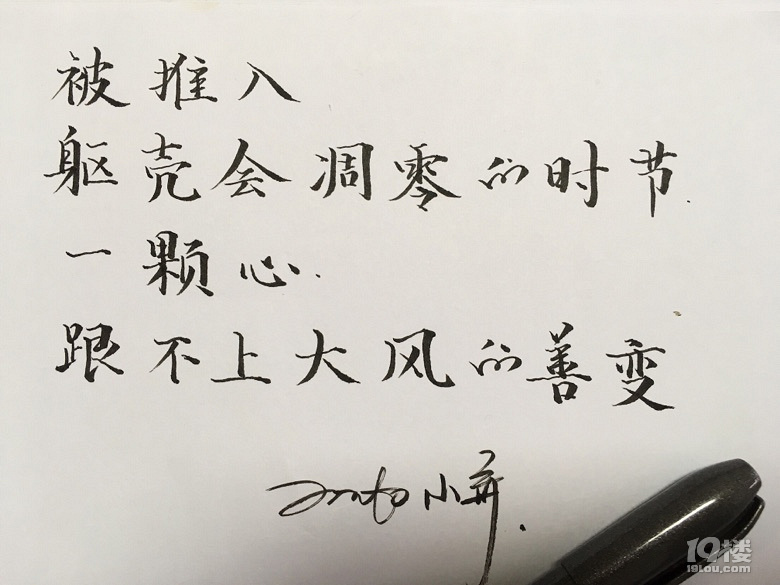 被推入
躯壳会凋零的时节.
一颗心.
跟不上大风的善变
小
19楼
19lou.com